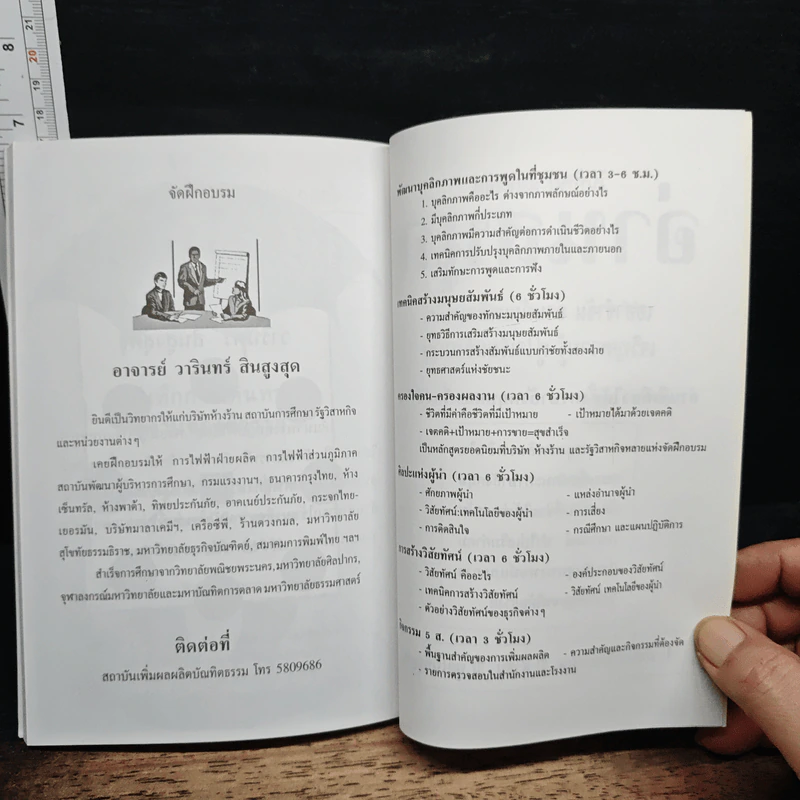 จัดฝึกอบรม
อาจารย์ วารินทร์ สินสูงสุด
ยินดีเป็นวิทยากรให้แก่บริษัทห้างร้าน สถาบันการศึกษา รัฐวิสาหกิจ
และหน่วยงานต่างๆ
เคยฝึกอบรมให้ การไฟฟ้าฝ่ายผลิต การไฟฟ้าส่วนภูมิภาค
สถาบันพัฒนาผู้บริหารการศึกษา, กรมแรงงานฯ, ธนาคารกรุงไทย, ห้าง
เซ็นทรัล, ห้างพาต้า, ทิพยประกันภัย, อาคเนย์ประกันภัย, กระจกไทย-
เยอรมัน, บริษัทมาลาเคมีฯ, เครือซีพี, ร้านดวงกมล, มหาวิทยาลัย
สุโขทัยธรรมธิราช, มหาวิทยาลัยธุรกิจบัณฑิตย์, สมาคมการพิมพ์ไทย ฯลฯ
สำเร็จการศึกษาจากวิทยาลัยพณิชยพระนคร, มหาวิทยาลัยศิลปากร,
จุฬาลงกรณ์มหาวิทยาลัยและมหาบัณฑิตการตลาด มหาวิทยาลัยธรรมศาสตร์
ติดต่อที่
สถาบันเพิ่มผลผลิตบัณฑิตธรรม โทร 5809686
พัฒนาบุคลิกภาพและการพูดในที่ชุมชน (เวลา 3-6 ช.ม.)
1. บุคลิกภาพคืออะไร ต่างจากภาพลักษณ์อย่างไร
2. มีบุคลิกภาพกี่ประเภท
3. บุคลิกภาพมีความสำคัญต่อการดำเนินชีวิตอย่างไร
4. เทคนิคการปรับปรุงบุคลิกภาพภายในและภายนอก
5. เสริมทักษะการพูดและการฟัง
เทคนิคสร้างมนุษยสัมพันธ์ (6 ชั่วโมง)
- ความสำคัญของทักษะมนุษยสัมพันธ์
- ยุทธวิธีการเสริมสร้างมนุษยสัมพันธ์
- กระบวนการสร้างสัมพันธ์แบบกำชัยทั้งสองฝ่าย
- ยุทธศาสตร์แห่งชัยชนะ
ครองใจคน-ครองผลงาน (เวลา 6 ชั่วโมง)
- ชีวิตที่มีค่าคือชีวิตที่มีเป้าหมาย - เป้าหมายได้มาด้วยเจตคติ
- เจตคติ+เป้าหมาย+การขาย=สุขสำเร็จ
เป็นหลักสูตรยอดนิยมที่บริษัท ห้างร้าน และรัฐวิสาหกิจหลายแห่งจัดฝึกอบรม
ศิลปะแห่งผู้นำ (เวลา 6 ชั่วโมง)
- ศักยภาพผู้นำ - แหล่งอำนาจผู้นำ
- วิสัยทัศน์:เทคโนโลยีของผู้นำ - การเสี่ยง
- การตัดสินใจ - กรณีศึกษา และแผนปฏิบัติการ
การสร้างวิสัยทัศน์ (เวลา 6 ชั่วโมง)
- วิสัยทัศน์ คืออะไร - องค์ประกอบของวิสัยทัศน์
- เทคนิคการสร้างวิสัยทัศน์ - วิสัยทัศน์ เทคโนโลยีของผู้นำ
- ตัวอย่างวิสัยทัศน์ของธุรกิจต่างๆ
กิจกรรม 5 ส. (เวลา 3 ชั่วโมง)
- พื้นฐานสำคัญของการเพิ่มผลผลิต - ความสำคัญและกิจกรรมที่ต้องจัด
- รายการตรวจสอบในสำนักงานและโรงงาน
8
7
21
20
19
18